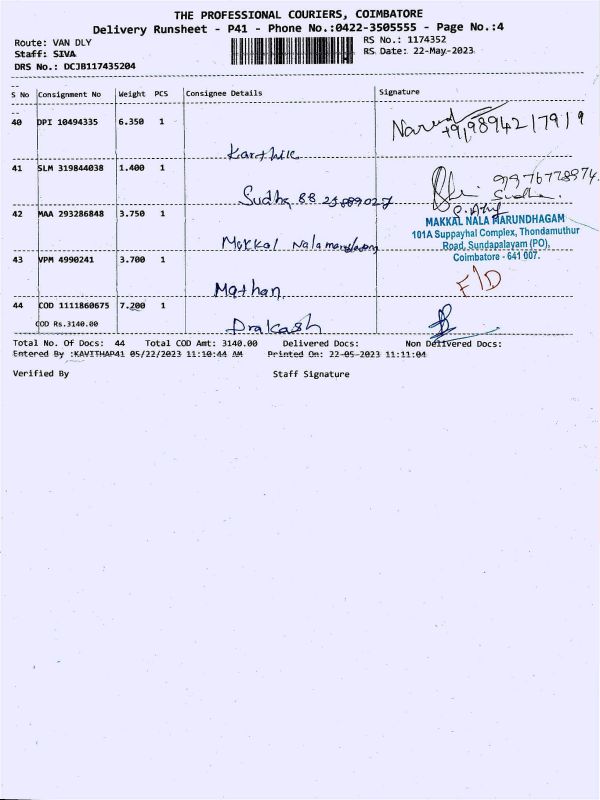 THE PROFESSIONAL COURIERS, COIMBATORE
Delivery Runsheet - P41 - Phone No.:0422-3505555 - Page No.:4
Route: VAN DLY
RS No.: 1174352
Staff: SIVA
RS Date: 22-May-2023
DRS No.: DCJB117435204
S No Consignment No Weight PCS Consignee Details Signature
40 DPI 10494335 6.350 1
+919894217919
Karthik
41 SLM 319844038 1.400 1
Sudha
42 MAA 293286848 3.750 1
MAKKAL NALA MARUNDHAGAM
101A Suppayhal Complex, Thondamuthur
Road, Sundapalayam (PO),
Coimbatore - 641 007.
Makkal Nala
43 VPM 4990241 3.700 1
F/D
Mathan
44 COD 1111860675 7.200 1
COD Rs.3140.00
Prakash
Total No. Of Docs: 44 Total COD Amt: 3140.00 Delivered Docs: Non Delivered Docs:
Entered By :KAVITHAP41 05/22/2023 11:10:44 AM Printed On: 22-05-2023 11:11:04
Verified By Staff Signature